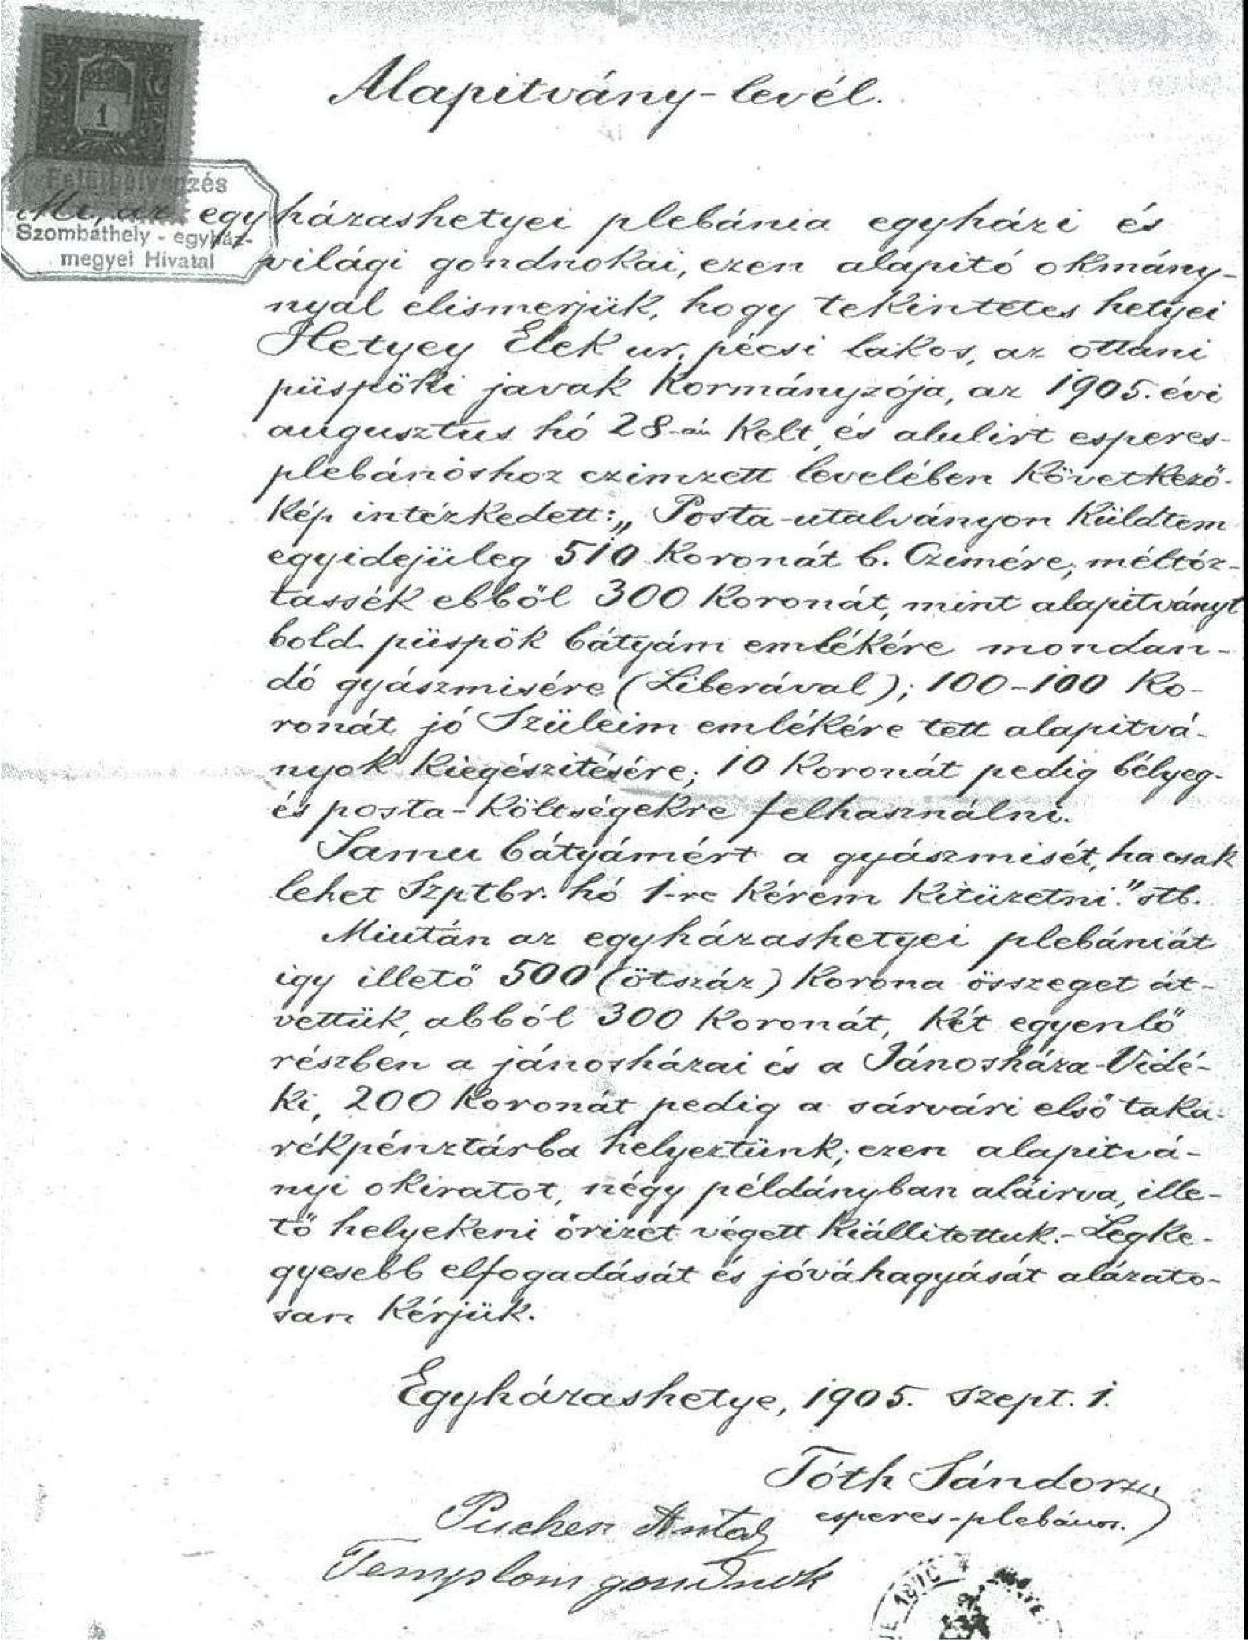 Alapitvány-levél.
1
Felülbélyegzés
Szombathely - egyház-
megyei Hivatal
Mi, az egyházashetyei plebánia egyházi és
világi gondnokai, ezen alapitó okmány-
nyal elismerjük, hogy tekintetes hetyei
Hetyey Elek ur, pécsi lakos, az ottani
püspöki javak Kormányzója, az 1905. évi
augusztus hó 28-án Kelt, és alulirt esperes-
plebánoshoz czimzett levelében Következő-
kép intézkedett: „Posta-utalványon Küldtem
egyidejüleg 510 Koronát b. Czimére; méltóz-
tassék ebből 300 Koronát, mint alapitványt
bold. püspök bátyám emlékére mondan-
dó gyászmisére (Liberával); 100-100 Ko-
ronát jó Szüleim emlékére tett alapitvá-
nyok Kiegészitésére; 10 Koronát pedig bélyeg-
és posta-Költségekre felhasználni.
Samu bátyámért a gyászmisét, ha csak
lehet Szptbr. hó 1-re Kérem Kitüzetni." stb.
Miután az egyházashetyei plebániát
igy illető 500 (ötszáz) Korona összeget át-
vettük, abból 300 Koronát, Két egyenlő
részben a jánosházai és a Jánosháza-Vidé-
ki, 200 Koronát pedig a sárvári első taka-
rékpénztárba helyeztünk; ezen alapitvá-
nyi okiratot, négy példányban aláirva, ille-
tő helyekeni őrizet végett Kiállitottuk.- Legke-
gyesebb elfogadását és jóváhagyását alázato-
san Kérjük.
Egyházashetye, 1905. szept. 1.
Tóth Sándor
esperes-plebános.
Pucher Antal
Templom gondnok